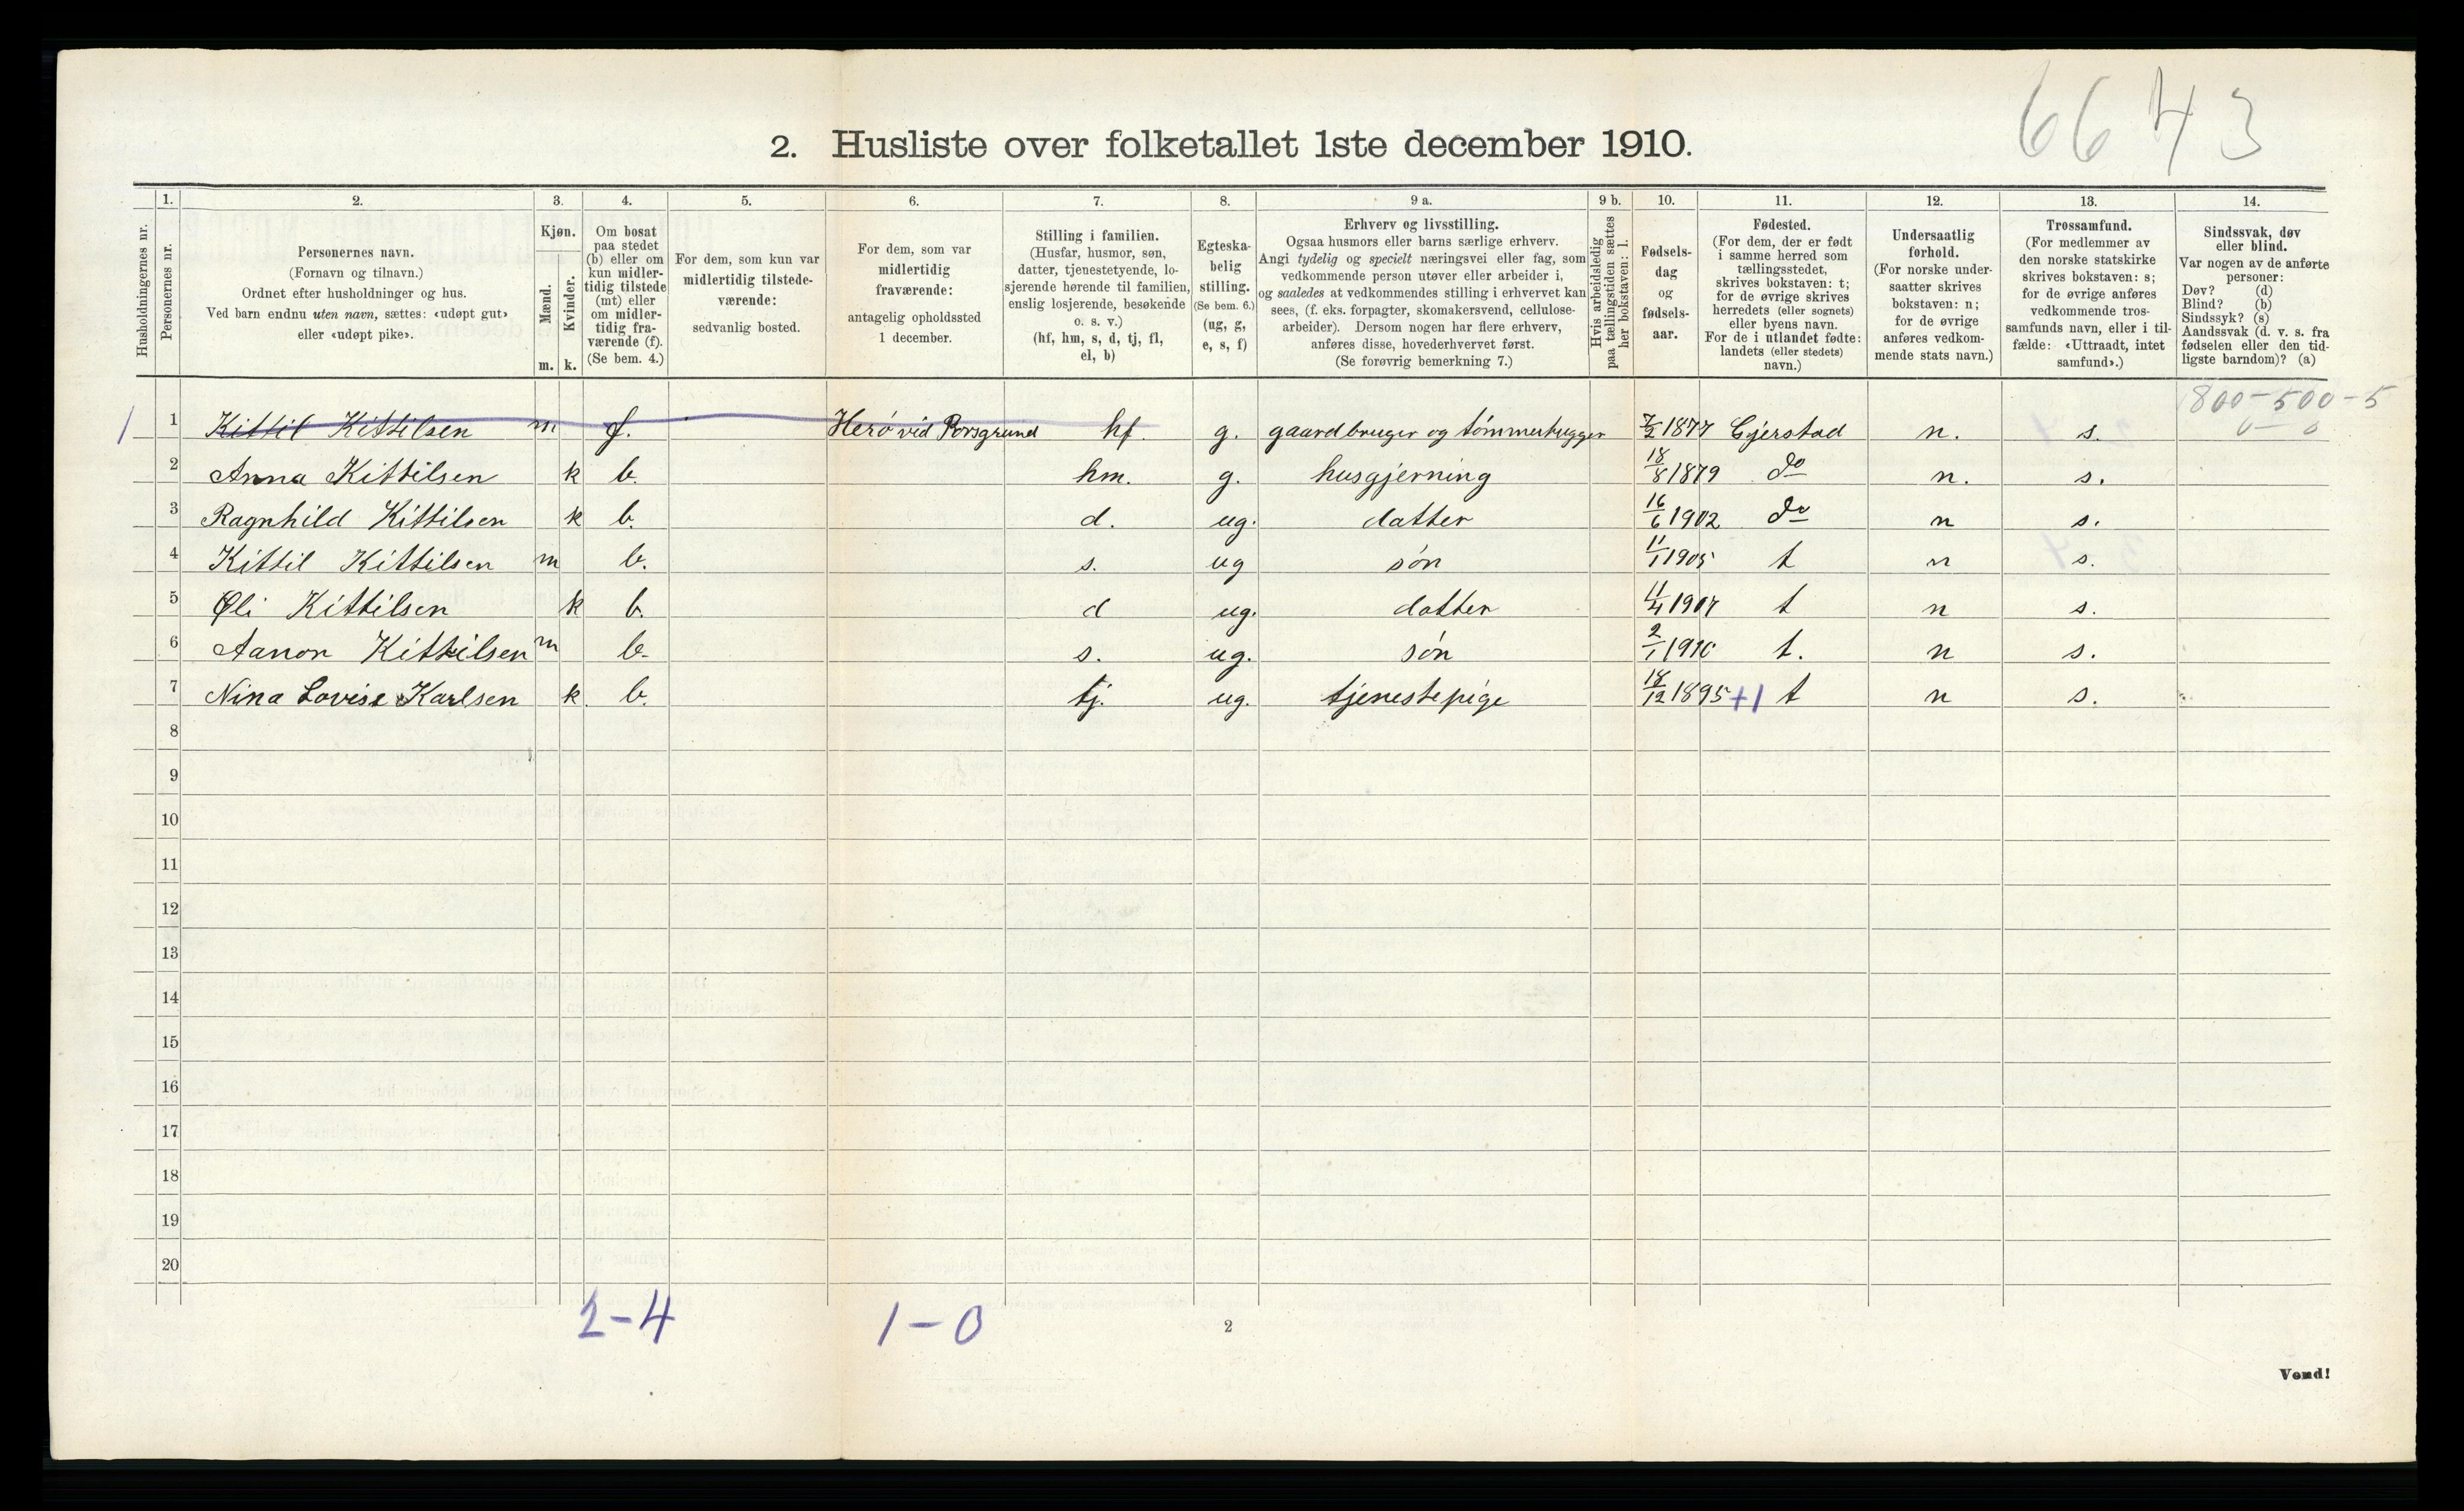 6643
2. Husliste over folketallet 1ste december 1910.
Husholdningernes nr.
1. Personernes nr.
2. Personernes navn. (Fornavn og tilnavn.) Ordnet efter husholdninger og hus. Ved barn endnu uten navn, sættes: «udøpt gut» eller «udøpt pike».
3. Kjøn. Mænd. m. Kvinder. k.
4. Om bosat paa stedet (b) eller om kun midlertidig tilstede (mt) eller om midlertidig fraværende (f). (Se bem. 4.)
5. For dem, som kun var midlertidig tilstedeværende: sedvanlig bosted.
6. For dem, som var midlertidig fraværende: antagelig opholdssted 1 december.
7. Stilling i familien. (Husfar, husmor, søn, datter, tjenestetyende, losjerende hørende til familien, enslig losjerende, besøkende o. s. v.) (hf, hm, s, d, tj, fl, el, b)
8. Egteskabelig stilling. (Se bem. 6.) (ug, g, e, s, f)
9 a. Erhverv og livsstilling. Ogsaa husmors eller barns særlige erhverv. Angi tydelig og specielt næringsvei eller fag, som vedkommende person utøver eller arbeider i, og saaledes at vedkommendes stilling i erhvervet kan sees, (f. eks. forpagter, skomakersvend, cellulosearbeider). Dersom nogen har flere erhverv, anføres disse, hovederhvervet først. (Se forøvrig bemerkning 7.)
9 b. Hvis arbeidsledig paa tællingstiden sættes her bokstaven: l.
10. Fødselsdag og fødselsaar.
11. Fødested. (For dem, der er født i samme herred som tællingsstedet, skrives bokstaven: t; for de øvrige skrives herredets (eller sognets) eller byens navn. For de i utlandet fødte: landets (eller stedets) navn.)
12. Undersaatlig forhold. (For norske undersaatter skrives bokstaven: n; for de øvrige anføres vedkommende stats navn.)
13. Trossamfund. (For medlemmer av den norske statskirke skrives bokstaven: s; for de øvrige anføres vedkommende trossamfunds navn, eller i tilfælde: «Uttraadt, intet samfund».)
14. Sindssvak, døv eller blind. Var nogen av de anførte personer: Døv? (d) Blind? (b) Sindssyk? (s) Aandssvak (d. v. s. fra fødselen eller den tidligste barndom)? (a)
800-500-5
0-0
1 1 Kittil Kittilsen m f. Herö vid Porsgrund hf. g. gaardbruger og tömmerhugger 7/2 1877 Gjerstad n. s.
2 Anna Kittilsen k b. hm. g. husgjerning 18/8 1879 do n. s.
3 Ragnhild Kittilsen k b. d. ug. datter 16/6 1902 do n s.
4 Kittil Kittilsen m b. s. ug søn 11/1 1905 t n s.
5 Øli Kittilsen k b. d ug. datter 11/4 1907 t n s.
6 Aanon Kittilsen m b. s. ug. søn 2/1 1910 t. n s.
7 Nina Lovise Karlsen k. b. tj. ug. tjenestepige 18/12 1895 +1 t n s.
8
9
10
11
12
13
14
15
16
17
18
19
20
2-4 1-0
2
Vend!